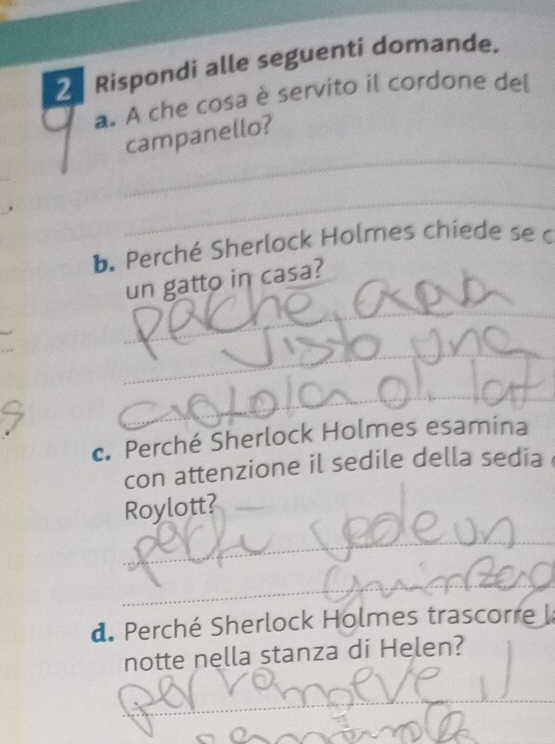 2 Rispondi alle seguenti domande.
a. A che cosa è servito il cordone del
campanello?
b. Perché Sherlock Holmes chiede se c
un gatto in casa?
visto una
c. Perché Sherlock Holmes esamina
con attenzione il sedile della sedia
Roylott?
vede un
d. Perché Sherlock Holmes trascorre la
notte nella stanza di Helen?
il